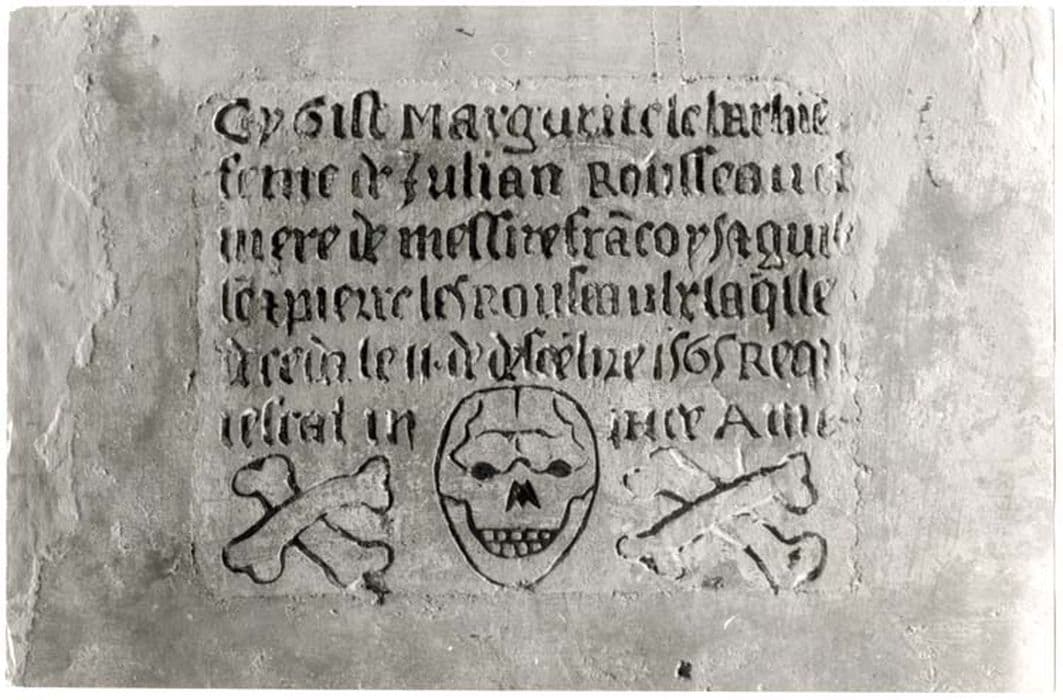 Cy Gist Margurite le barbie
feme de Julian Rousseau et
mere de messire frãcoys aguil
lē & pierre les Rouseaulx laq̄lle
deceda le 11 de descēbre 1565 Requi
iescat in pace Ame